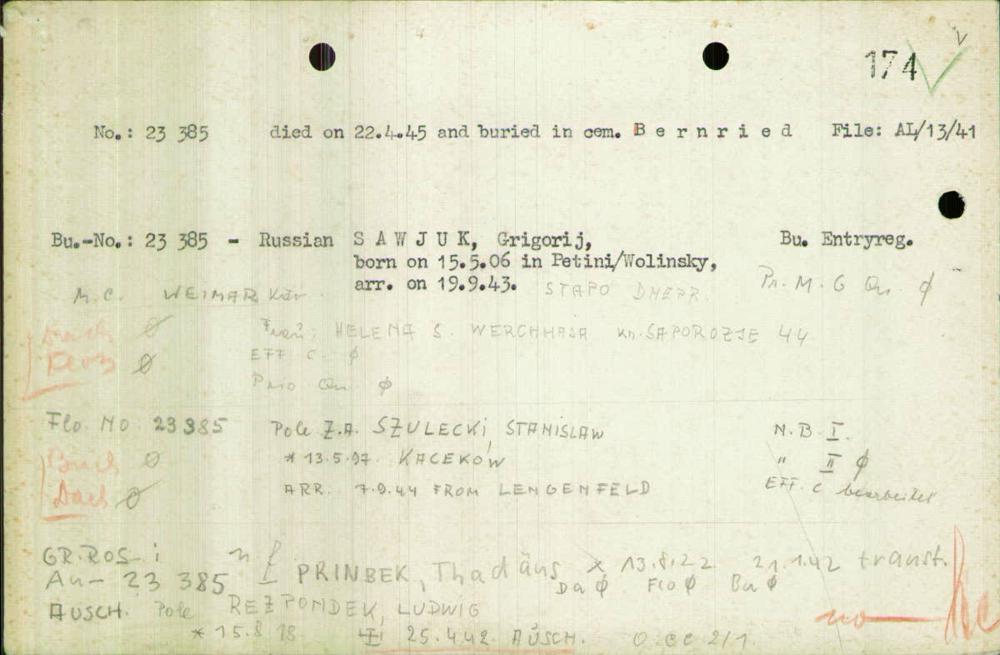 174
No.: 23 385 died on 22.4.45 and buried in cem. B e r n r i e d File: AL/13/41
Bu.-No.: 23 385 - Russian S A W J U K, Grigorij, Bu. Entryreg.
born on 15.5.06 in Petini/Wolinsky,
arr. on 19.9.43. STAPO DNEPR. Pr. M. G Qu. ϕ
M.C. WEIMAR
Dach ϕ Frau: HELENA S. WERCHHASA KN. SAPOROZJE 44
Flos ϕ EFF C. ϕ
Prio Qu ϕ
Flo. NO 23385 Pole Z.A. SZULECKI STANISLAW N.B. I.
Buch ϕ * 13.5.97. KACEKOW " II ϕ
Dach ϕ ARR. 7.9.44 FROM LENGENFELD EFF. C bearbeitet
GR.ROS. PRINBEK, Thadäus * 13.8.22 21.1.42 transf.
Au- 23 385 Da ϕ Flo ϕ Bu ϕ
AUSCH. Pole REZPONDEK, LUDWIG no
* 15.8 18 25.4.42. AUSCH. O.CC 2/1.